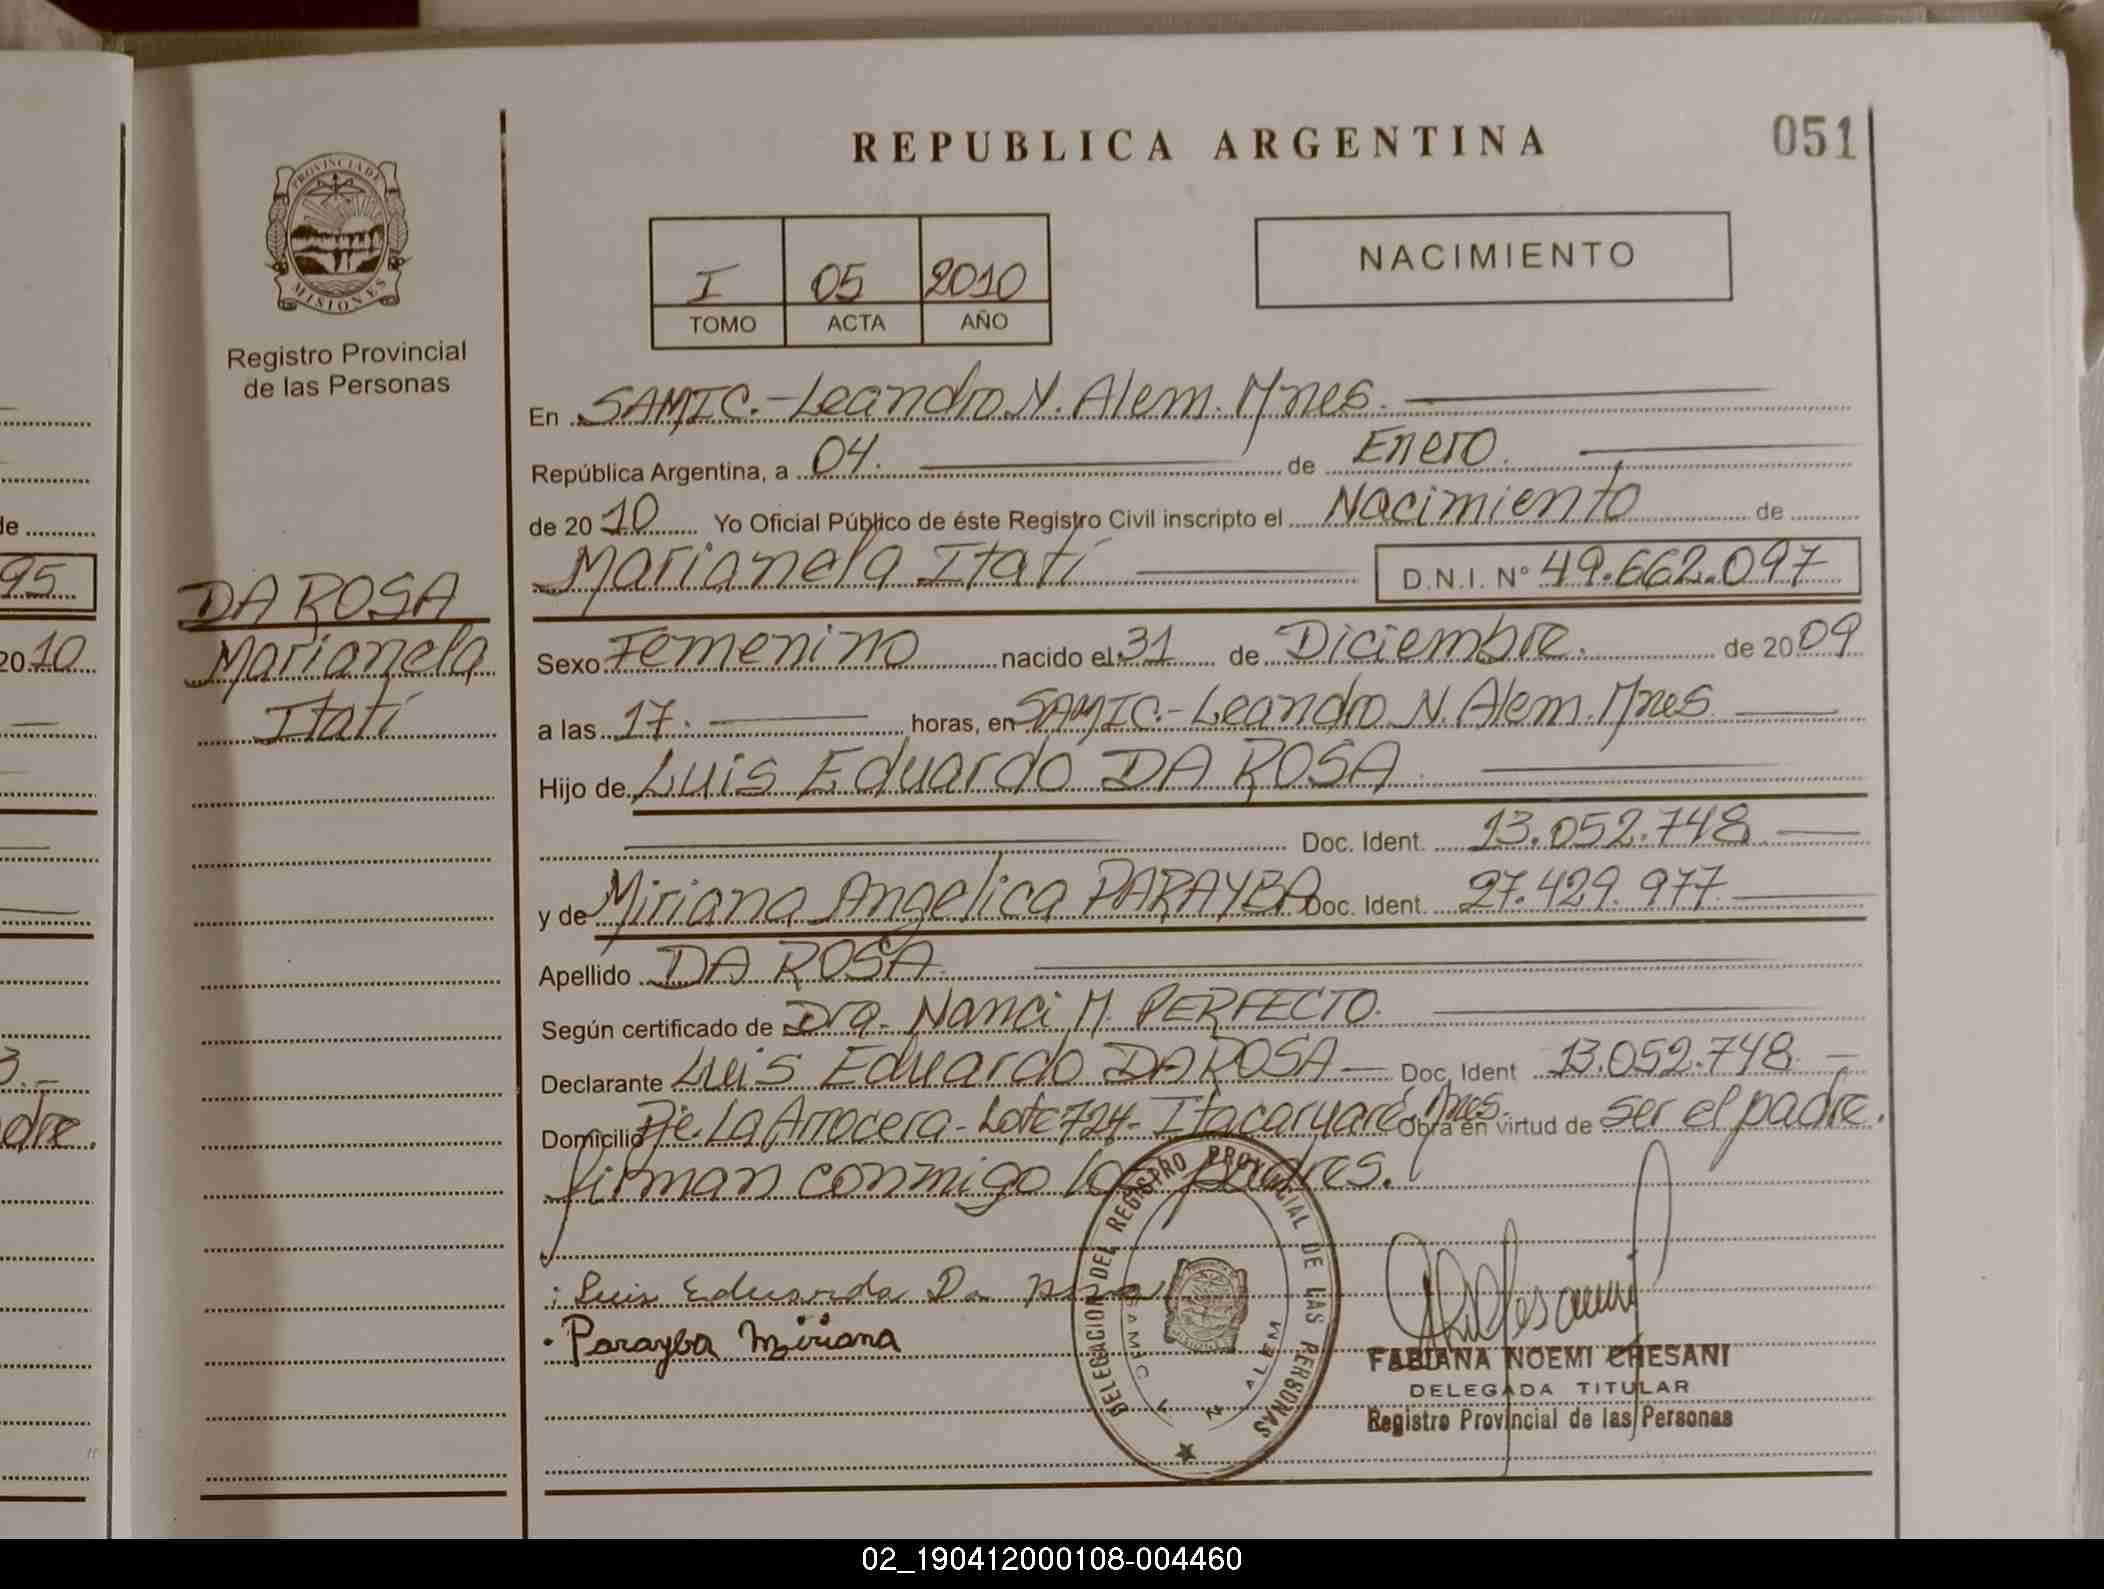 REPUBLICA ARGENTINA
051
PROVINCIA DE
MISIONES
Registro Provincial
de las Personas
I 05 2010
TOMO ACTA AÑO
NACIMIENTO
En SAMIC.-Leandro N. Alem. Mnes.
República Argentina, a 04. de Enero.
de 2010 Yo Oficial Público de éste Registro Civil inscripto el Nacimiento de
Marianela Itatí D.N.I. N° 49.662.097
DA ROSA
Marianela
Itatí
Sexo Femenino nacido el 31 de Diciembre. de 2009
a las 17. horas, en SAMIC.-Leandro N. Alem. Mnes
Hijo de Luis Eduardo DA ROSA
Doc. Ident. 13.052.748
y de Miriana Angelica PARAYBA Doc. Ident. 27.429.977
Apellido DA ROSA
Según certificado de Dra. Nanci M. PERFECTO.
Declarante Luis Eduardo DA ROSA Doc. Ident 13.052.748
Domicilio Pje. La Arrocera-Lote 724-Itacaruaré, Mnes. Obra en virtud de ser el padre.
firman conmigo los padres.
Luis Eduardo Da Rosa
Parayba Miriana
DELEGACION DEL REGISTRO PROVINCIAL DE LAS PERSONAS
SAMIC L. N. ALEM
FABIANA NOEMI CHESANI
DELEGADA TITULAR
Registro Provincial de las Personas
de
95
2010
3.-
adre.
02_190412000108-004460